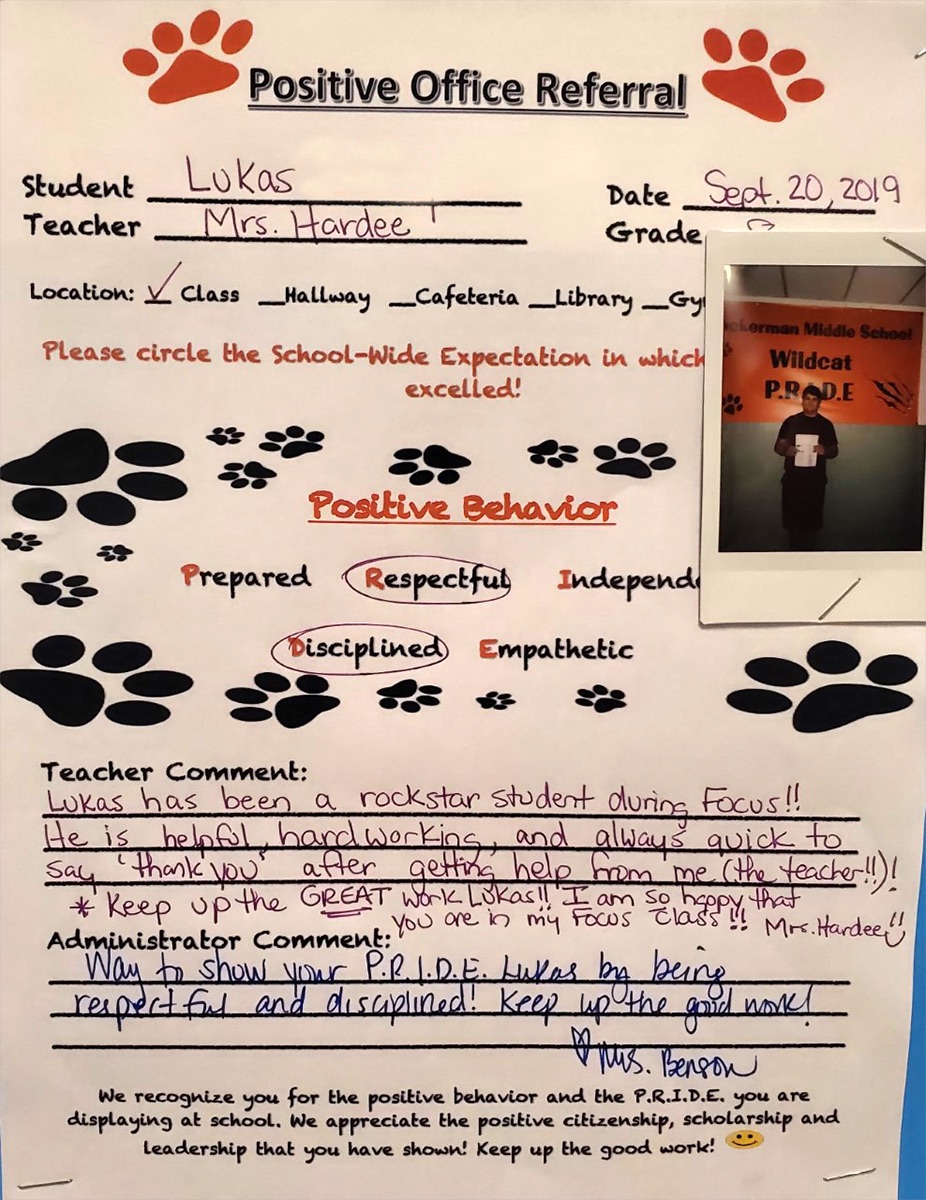 Positive Office Referral
Student Lukas
Date Sept. 20, 2019
Teacher Mrs. Hardee
Grade
Location: ✓ Class __Hallway __Cafeteria __Library __Gy
Please circle the School-Wide Expectation in which
excelled!
ckerman Middle School
Wildcat
P.R.I.D.E
Positive Behavior
Prepared Respectful Independe
Disciplined Empathetic
Teacher Comment:
Lukas has been a rockstar student during Focus!!
He is helpful, hardworking, and always quick to
say 'thank you' after getting help from me (the teacher!!)!
* Keep up the GREAT work Lukas!! I am so happy that
you are in my Focus class!! Mrs. Hardee
Administrator Comment:
Way to show your P.R.I.D.E. Lukas by being
respectful and disciplined! Keep up the good work!
♡ Mrs. Benson
We recognize you for the positive behavior and the P.R.I.D.E. you are
displaying at school. We appreciate the positive citizenship, scholarship and
leadership that you have shown! Keep up the good work!